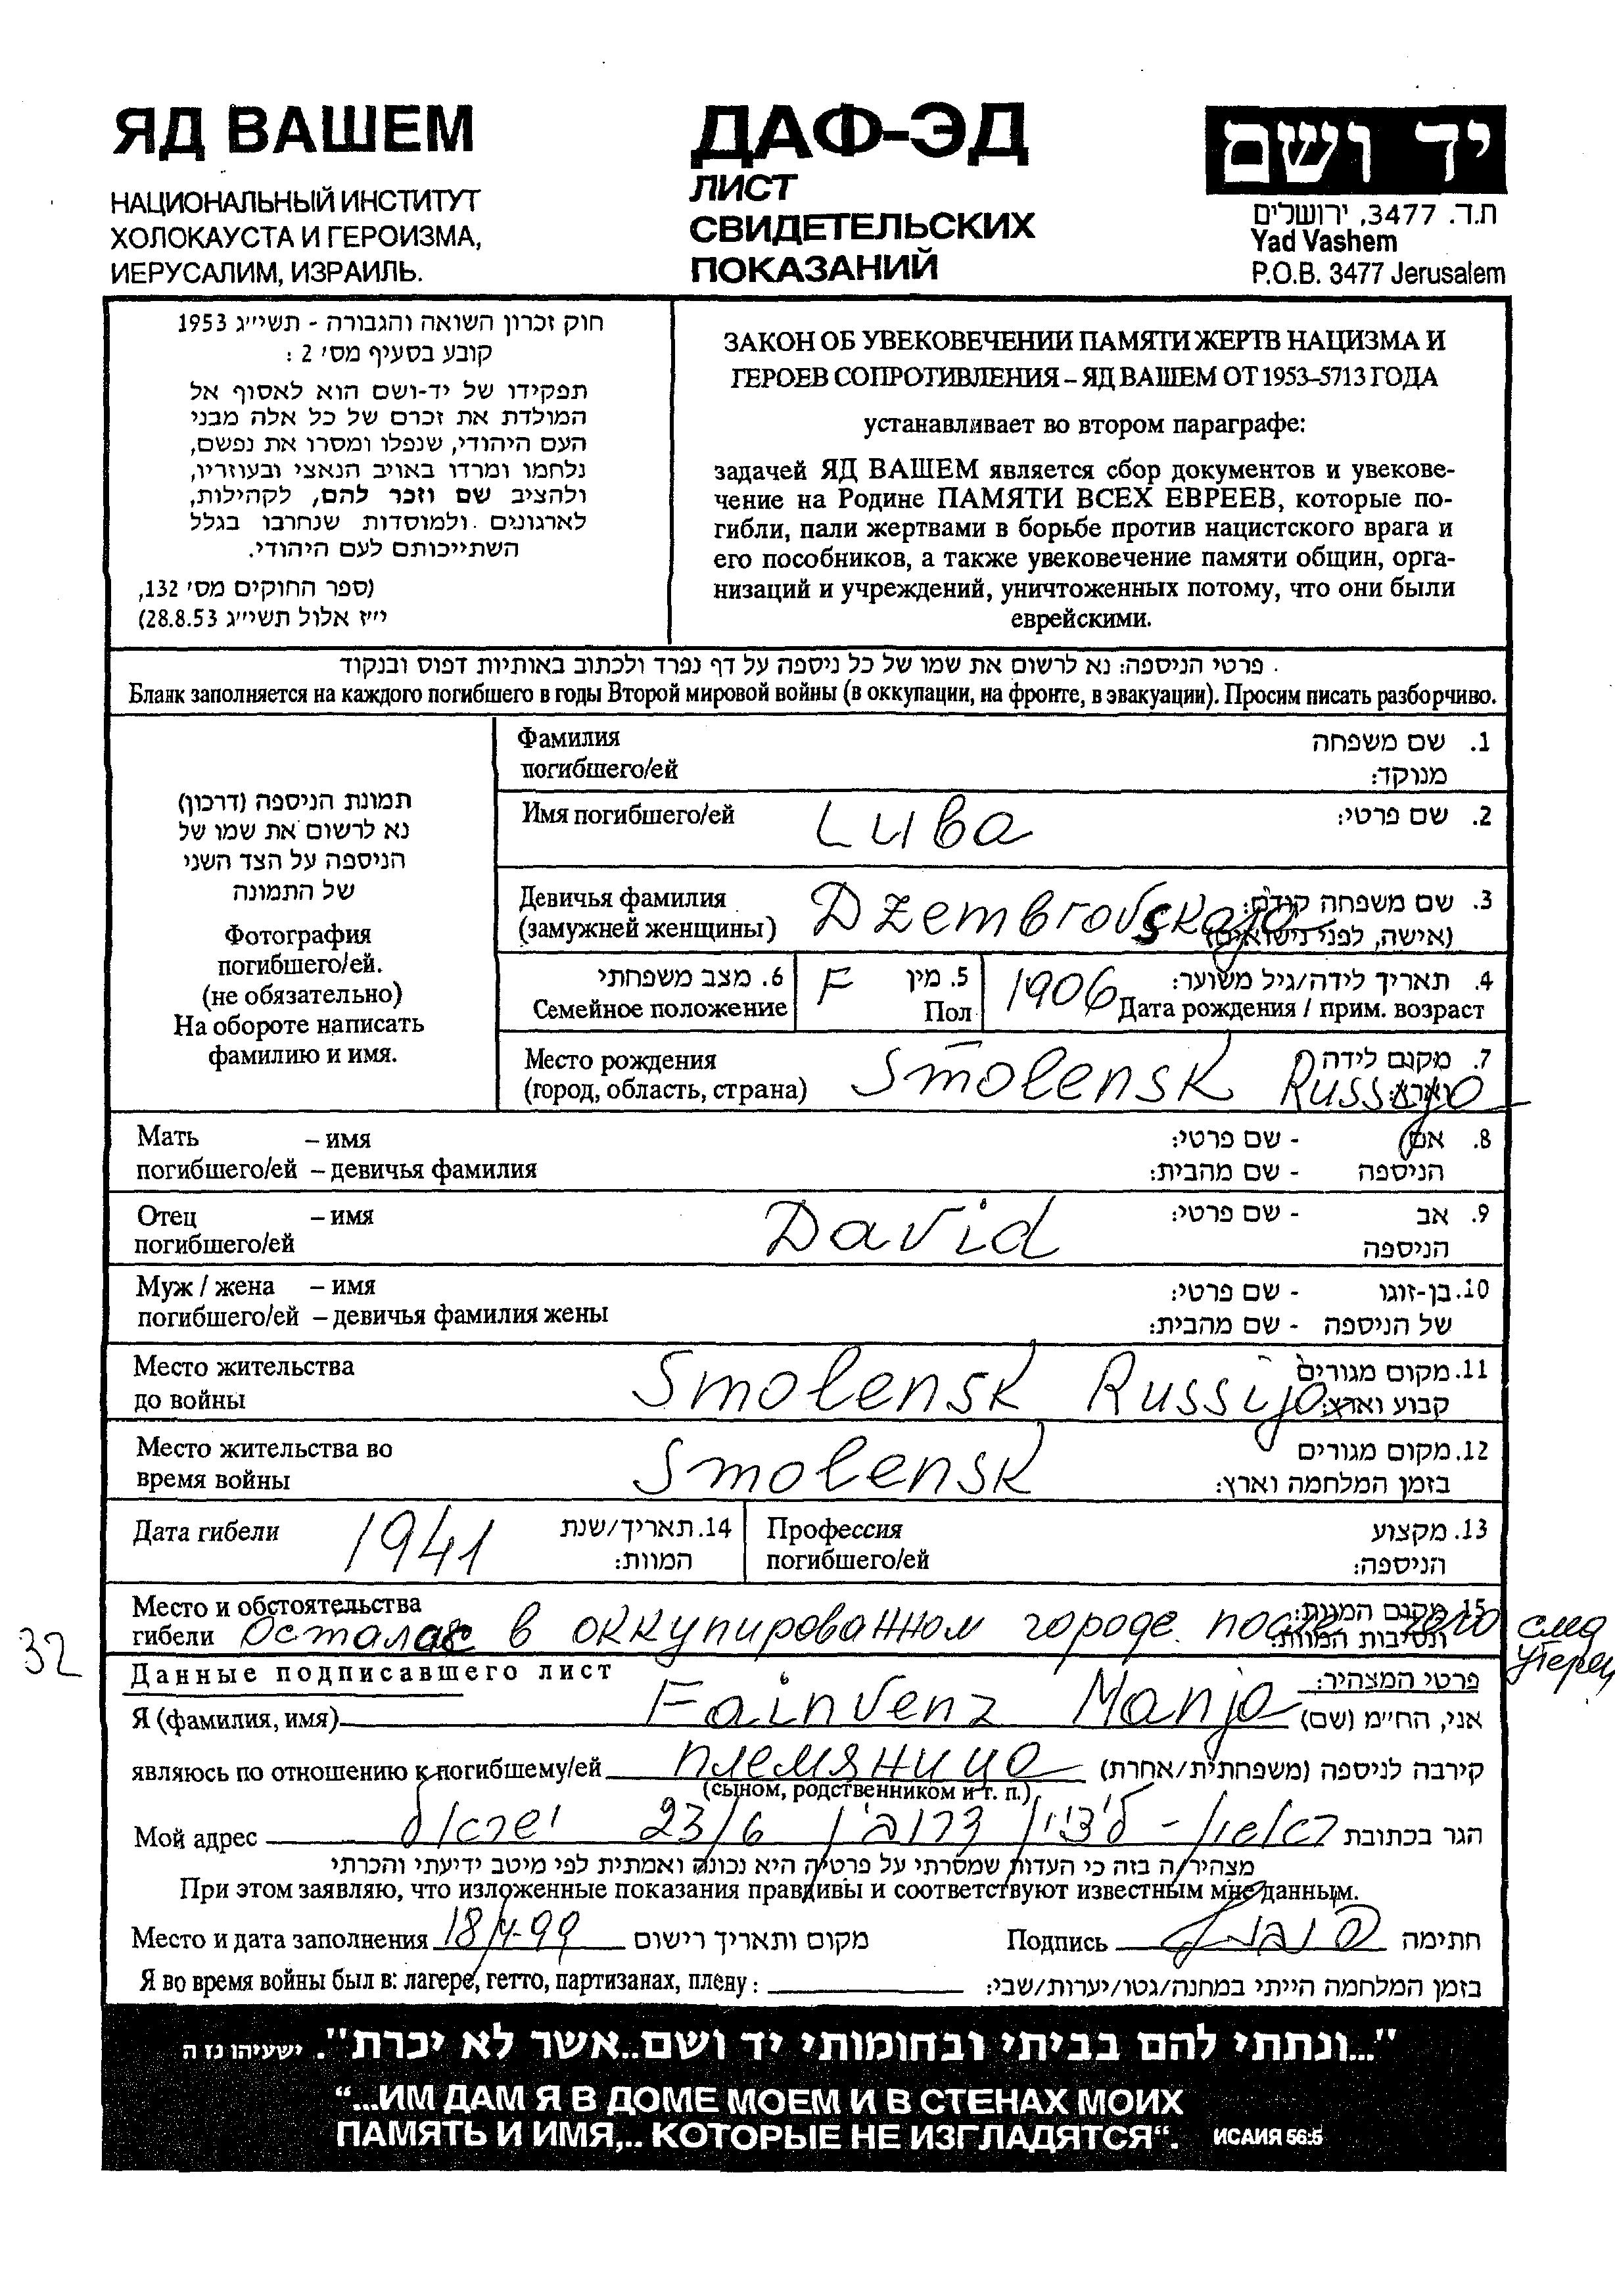 ЯД ВАШЕМ
НАЦИОНАЛЬНЫЙ ИНСТИТУТ
ХОЛОКАУСТА И ГЕРОИЗМА,
ИЕРУСАЛИМ, ИЗРАИЛЬ.
ДАФ-ЭД
ЛИСТ
СВИДЕТЕЛЬСКИХ
ПОКАЗАНИЙ
יד ושם
ת.ד. 3477, ירושלים
Yad Vashem
P.O.B. 3477 Jerusalem
חוק זכרון השואה והגבורה - תשי״ג 1953
קובע בסעיף מס׳ 2 :
תפקידו של יד-ושם הוא לאסוף אל
המולדת את זכרם של כל אלה מבני
העם היהודי, שנפלו ומסרו את נפשם,
נלחמו ומרדו באויב הנאצי ובעוזריו,
ולהציב שם וזכר להם, לקהילות,
לארגונים ולמוסדות שנחרבו בגלל
השתייכותם לעם היהודי.
(ספר החוקים מס׳ 132,
י״ז אלול תשי״ג 28.8.53)
ЗАКОН ОБ УВЕКОВЕЧЕНИИ ПАМЯТИ ЖЕРТВ НАЦИЗМА И
ГЕРОЕВ СОПРОТИВЛЕНИЯ – ЯД ВАШЕМ ОТ 1953–5713 ГОДА
устанавливает во втором параграфе:
задачей ЯД ВАШЕМ является сбор документов и увекове-
чение на Родине ПАМЯТИ ВСЕХ ЕВРЕЕВ, которые по-
гибли, пали жертвами в борьбе против нацистского врага и
его пособников, а также увековечение памяти общин, орга-
низаций и учреждений, уничтоженных потому, что они были
еврейскими.
פרטי הניספה: נא לרשום את שמו של כל ניספה על דף נפרד ולכתוב באותיות דפוס ובנקוד
Бланк заполняется на каждого погибшего в годы Второй мировой войны (в оккупации, на фронте, в эвакуации). Просим писать разборчиво.
תמונת הניספה (דרכון)
נא לרשום את שמו של
הניספה על הצד השני
של התמונה
Фотография
погибшего/ей.
(не обязательно)
На обороте написать
фамилию и имя.
Фамилия 1. שם משפחה
погибшего/ей מנוקד:
Имя погибшего/ей Luba 2. שם פרטי:
Девичья фамилия Dzembrovskaja 3. שם משפחה קודם:
(замужней женщины) (אישה, לפני נישואים)
6. מצב משפחתי F 5. מין 1906 4. תאריך לידה/גיל משוער:
Семейное положение Пол Дата рождения / прим. возраст
Место рождения Smolensk Russija 7. מקום לידה
(город, область, страна) וארץ:
Мать – имя - שם פרטי: 8. אם
погибшего/ей – девичья фамилия - שם מהבית: הניספה
Отец – имя David - שם פרטי: 9. אב
погибшего/ей הניספה
Муж / жена – имя - שם פרטי: 10. בן-זוגו
погибшего/ей – девичья фамилия жены - שם מהבית: של הניספה
Место жительства Smolensk Russija 11. מקום מגורים
до войны קבוע וארץ:
Место жительства во Smolensk 12. מקום מגורים
время войны בזמן המלחמה וארץ:
Дата гибели 1941 14. תאריך/שנת Профессия 13. מקצוע
המוות: погибшего/ей הניספה:
Место и обстоятельства 15. מקום המוות:
гибели Осталась в оккупированном городе после чего след ונסיבות המוות:
утерян
32
Данные подписавшего лист פרטי המצהיר:
Я (фамилия, имя) Fainvenz Manja אני, הח״מ (שם)
являюсь по отношению к погибшему/ей племяница קירבה לניספה (משפחתית/אחרת)
(сыном, родственником и т. п.)
Мой адрес ראשון-לציון 23/6 ישראל הגר בכתובת
מצהיר/ה בזה כי העדות שמסרתי על פרטיה היא נכונה ואמתית לפי מיטב ידיעתי והכרתי
При этом заявляю, что изложенные показания правдивы и соответствуют известным мне данным.
Место и дата заполнения מקום ותאריך רישום Подпись חתימה
Я во время войны был в: лагере, гетто, партизанах, плену: בזמן המלחמה הייתי במחנה/גטו/יערות/שבי:
"...ונתתי להם בביתי ובחומותי יד ושם..אשר לא יכרת". ישעיהו נז ה
“...ИМ ДАМ Я В ДОМЕ МОЕМ И В СТЕНАХ МОИХ
ПАМЯТЬ И ИМЯ,.. КОТОРЫЕ НЕ ИЗГЛАДЯТСЯ“. ИСАИЯ 56:5